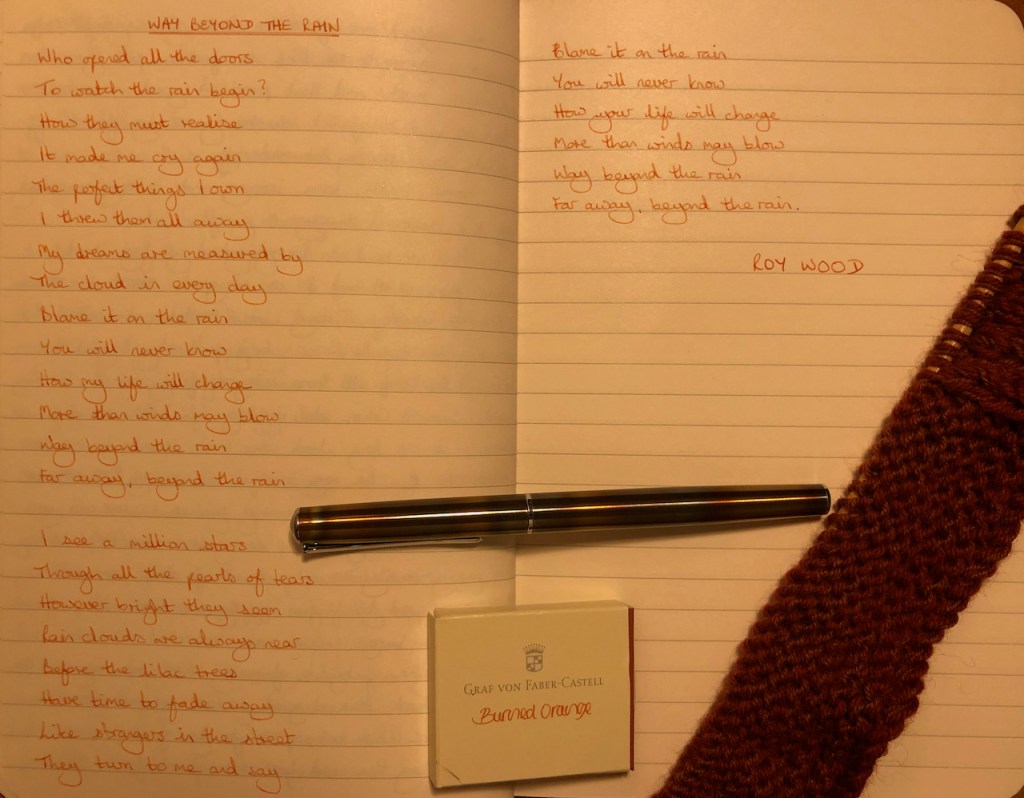 WAY BEYOND THE RAIN
Who opened all the doors
To watch the rain begin?
How they must realise
It made me cry again
The perfect things I own
I threw them all away
My dreams are measured by
The cloud in every day
Blame it on the rain
You will never know
How my life will change
More than winds may blow
Way beyond the rain
Far away, beyond the rain
I see a million stars
Through all the pearls of tears
However bright they seem
Rain clouds are always near
Before the lilac trees
Have time to fade away
Like strangers in the street
They turn to me and say
Blame it on the rain
You will never know
How your life will change
More than winds may blow
Way beyond the rain
Far away, beyond the rain.
ROY WOOD
GRAF VON FABER-CASTELL
Burned Orange